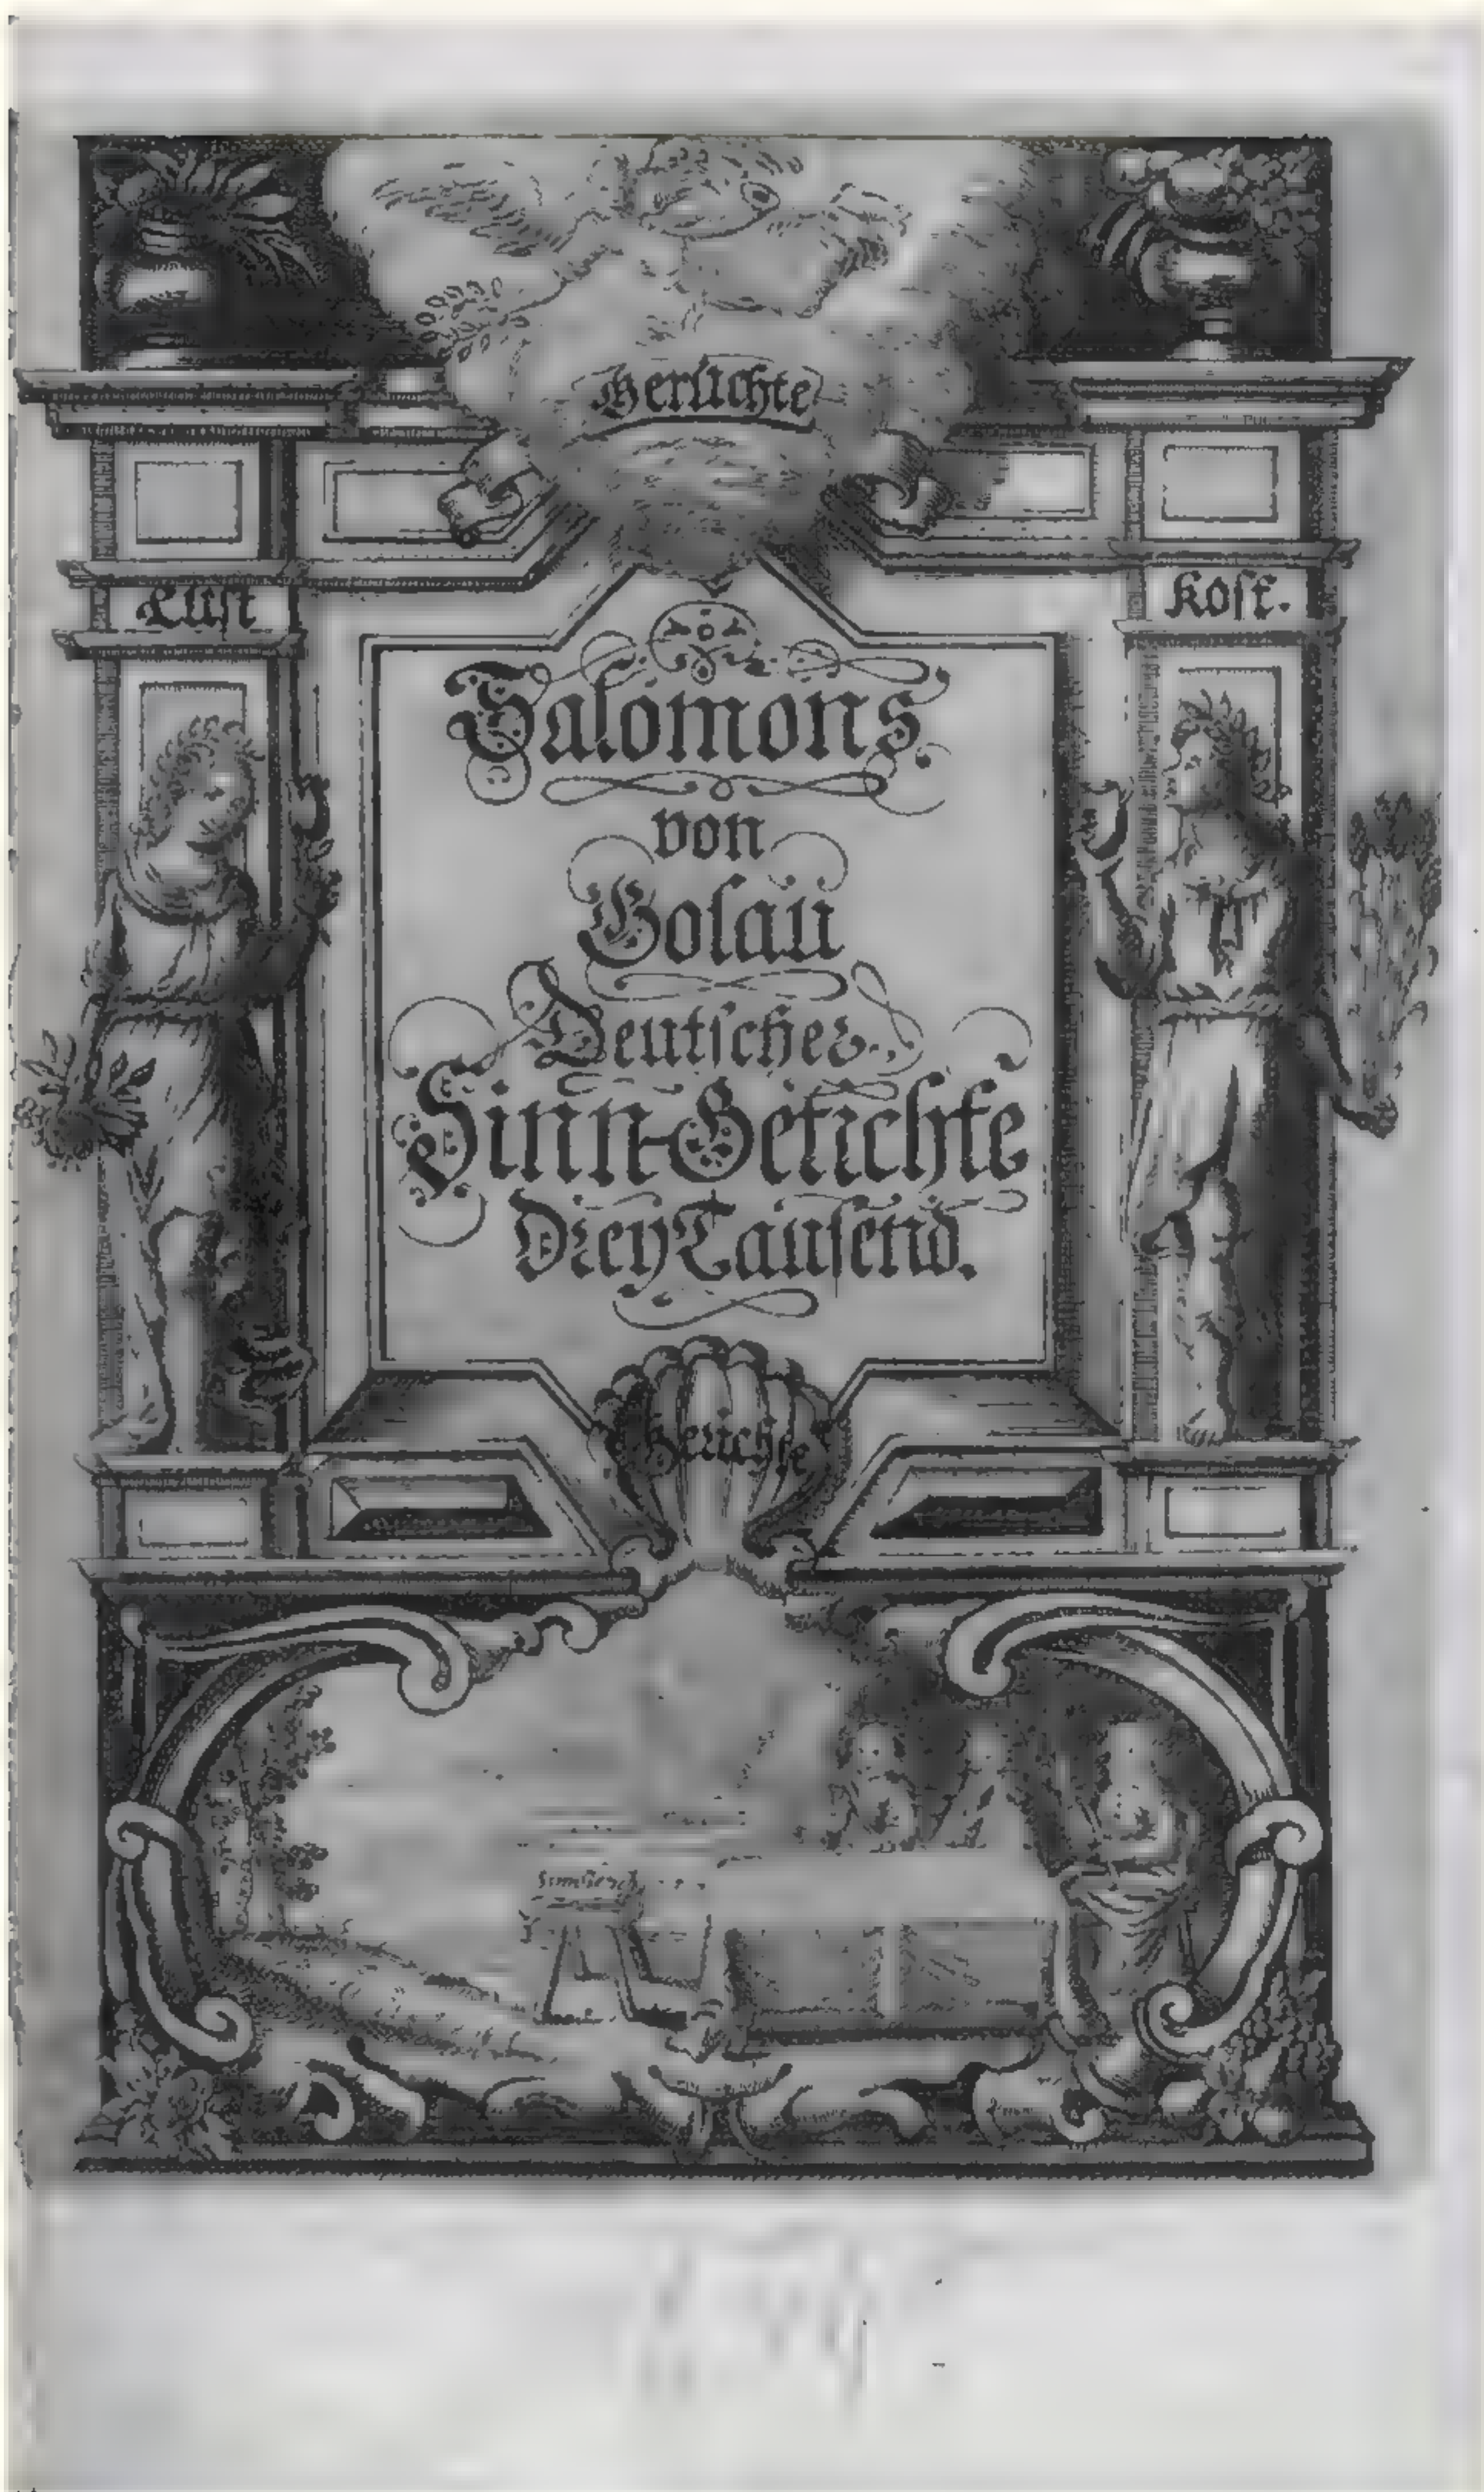 Gerüchte
Lust
Kost.
Salomons
von
Golau
Deutscher
Sinn-Getichte
Drey Tausend.
Gerichte